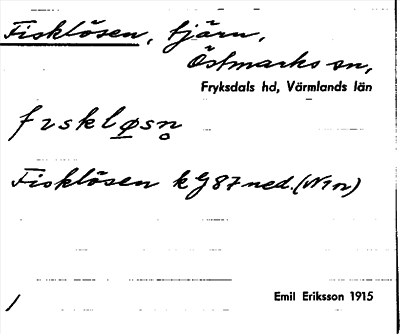 Fisklösen, tjärn,
Östmarks sn,
Fryksdals hd, Värmlands län
fɪskløsn̥
Fisklösen k G 87 ned. (N1n)
/
Emil Eriksson 1915